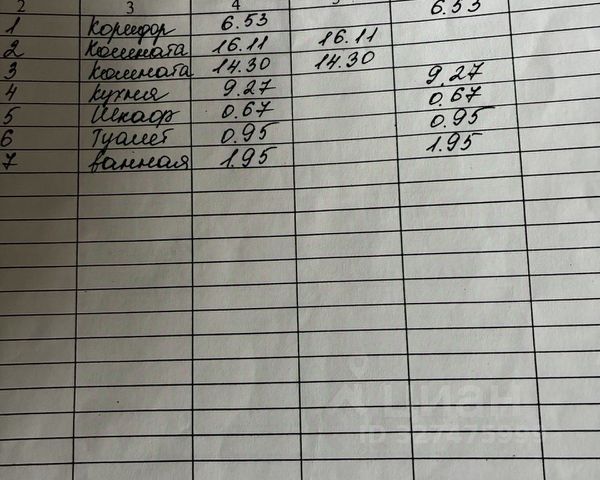 2 3 4 5
1 Коридор 6.53 6.53
2 Комната 16.11 16.11
3 Комната 14.30 14.30
4 Кухня 9.27 9.27
5 Шкаф 0.67 0.67
6 Туалет 0.95 0.95
7 ванная 1.95 1.95
Циан